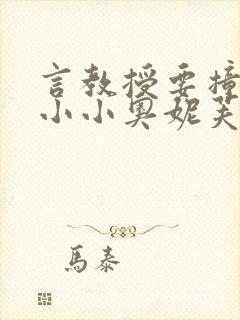 言教授要撞
小小奧妮芙
馬泰